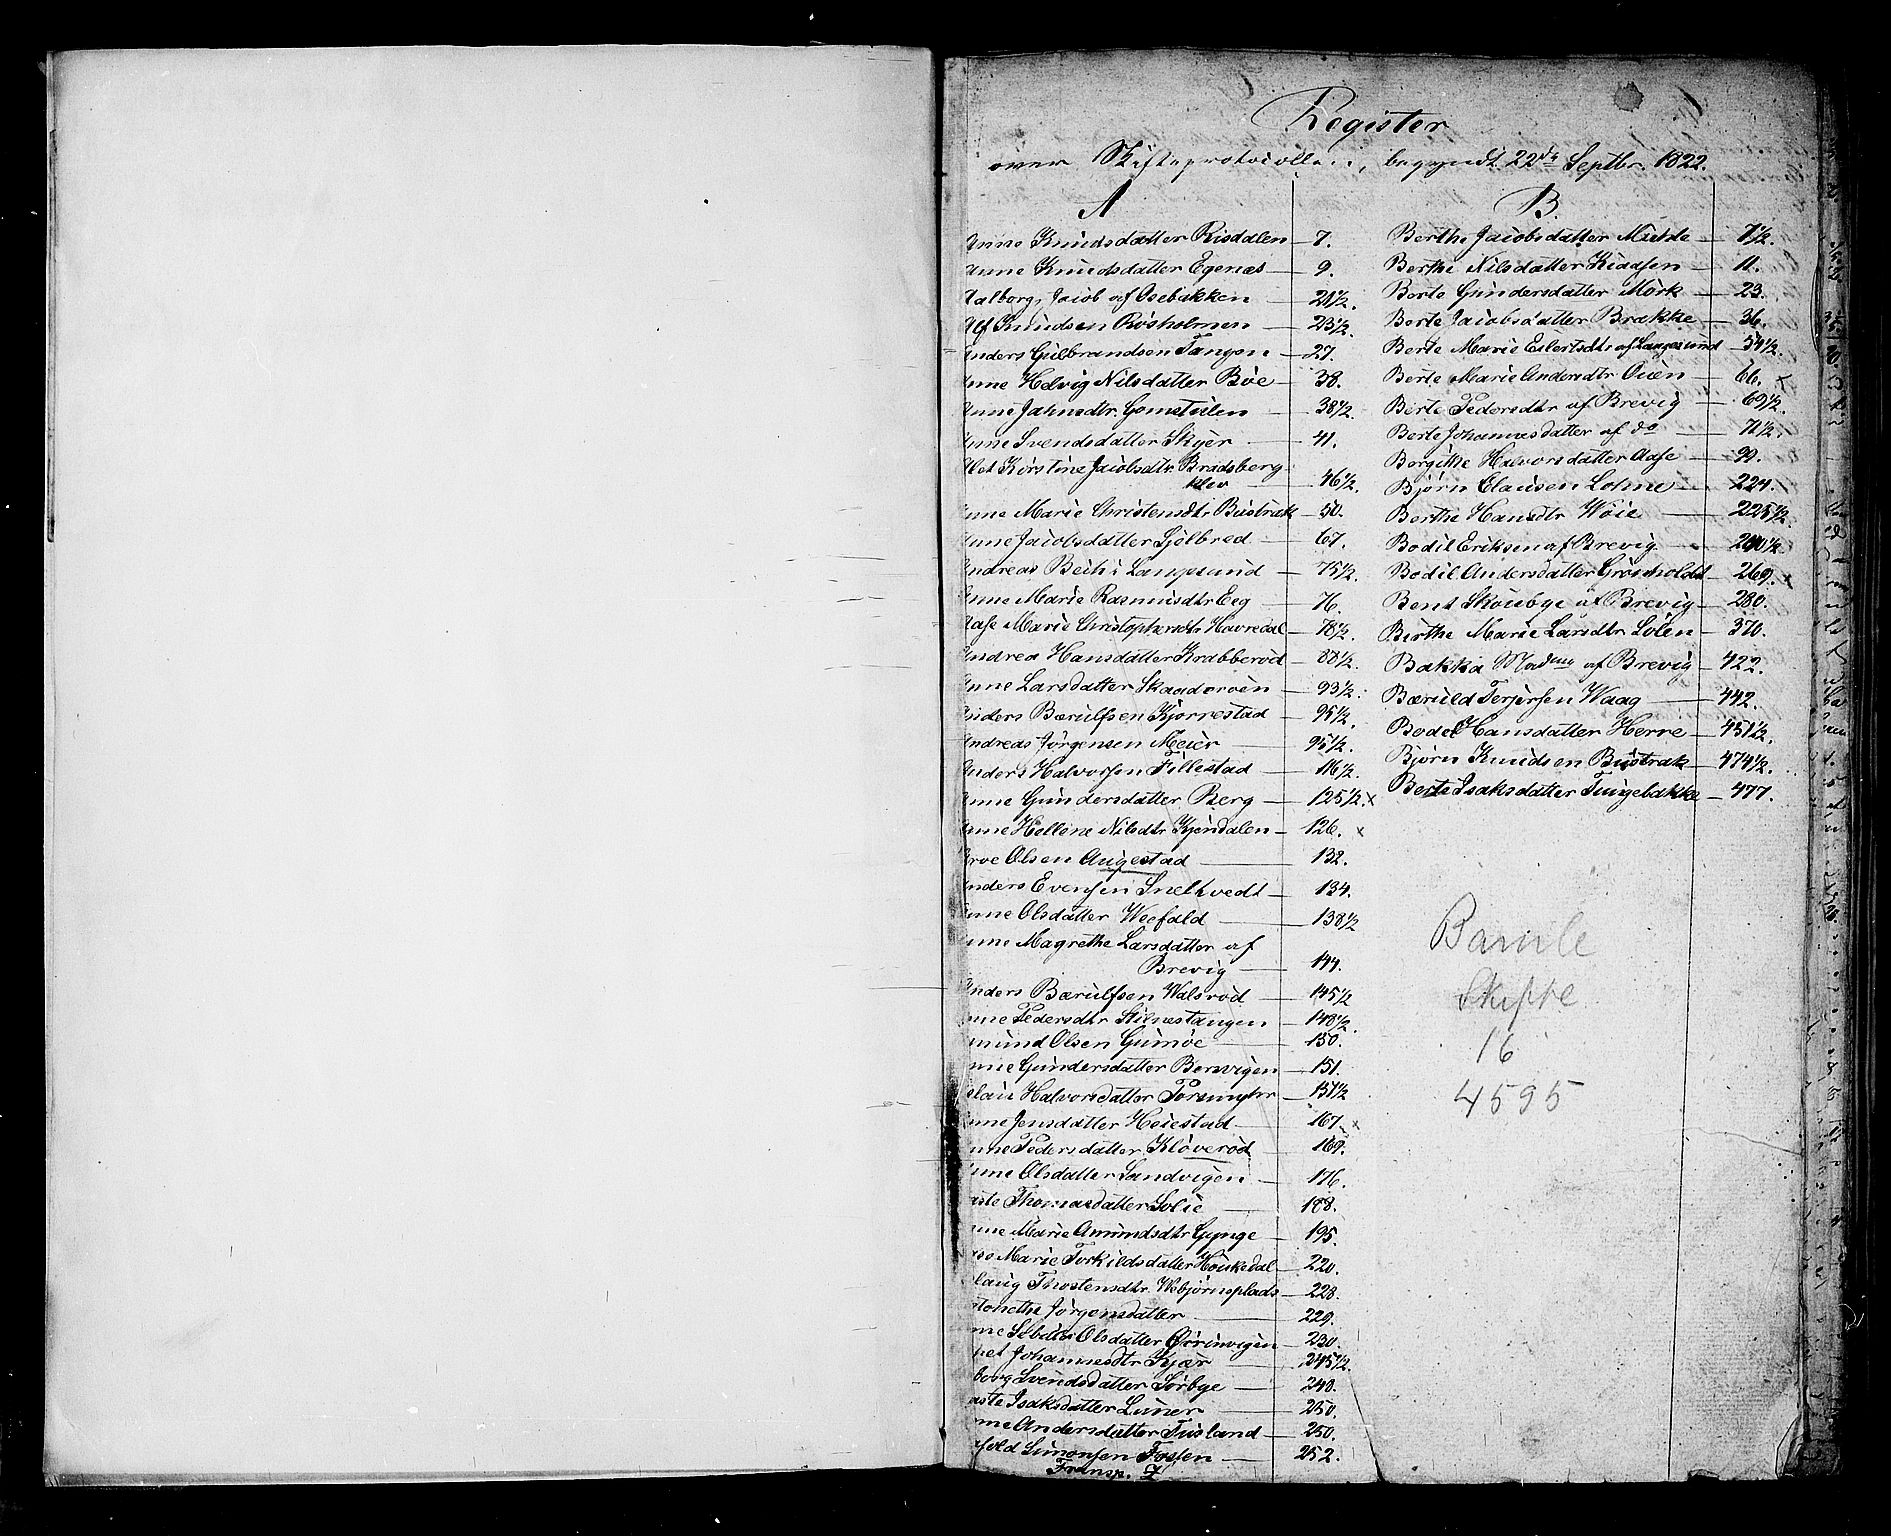 Register
over Skifteprotocollen, begyndt 22de Septbr. 1822.
A
Anne Knudsdatter Risdalen — 7.
Anne Knudsdatter Egenæs — 9.
Aalborg, Jacob af Osebakken — 21½.
Alf Knudsen Rosholmen — 23½.
Anders Gulbrandsen Tangen — 27.
Anne Helvig Nilsdatter Böe — 38.
Anne Jahnsdtr. Gomstulen — 38½.
Anne Svendsdatter Skjer — 41.
Kirstine Jacobsdtr. Bradsberg
klev — 46½.
Anne Marie Christensdtr Bustrak — 50.
Anne Jacobsdatter — 67.
Andreas Langesund — 75½.
Anne Marie Rasmusdtr Eeg — 76.
Aase Marie Christophersdtr Havredal — 78½.
Andrea Hansdatter Krabberöd — 88½.
Anne Larsdatter — 93½.
Anders Bærulfsen Kjorrestad — 95½.
Andreas Jörgensen Meier — 95½.
Anders Halvorsen Fillestad — 116½.
Anne Gundersdatter Berg — 125½. x
Anne Hellene Nilsdtr Kjendalen — 126. x
Arve Olsen Augestad — 132.
Anders Evensen Sneltvedt — 134.
Anne Olsdatter — 138½
Anne Magrethe Larsdatter af
Brevig — 144.
Anders Bærulfsen Valsröd — 145½
Anne Pedersdtr Stilnestangen — 148½.
Amund Olsen Gumöe — 150.
Anne Gundersdatter Bervigen — 151.
Aslau Halvorsdatter — 157½
Anne Jensdatter Heiestad — 167. x
Anne Pedersdatter Klöveröd — 169.
Anne Olsdatter Sandvigen — 176.
Aaste Thomasdatter Solie — 188.
Anne Marie Amundsdtr Gynge — 195.
Marie Torkildsdatter — 220.
Aslaug Thostensdtr. Wibjörnsplads — 228.
Antonethe Jörgensdatter — 229.
Anne Olsdatter — 230.
Johannesdtr Kjær — 245½.
Svendsdatter Sörbye — 240.
Aaste Isaksdatter Luner — 250.
Anne Andersdatter Tusland — 250.
Simonsen Fosten — 252.
Transp.
B.
Berthe Jacobsdatter — 7½.
Berthe Nilsdatter — 11.
Berte Gundersdatter Mörk — 23.
Berte Jacobsdatter Brække — 36.
Berte Marie Eilertsdtr af Langesund — 54½.
Berte Marie Andersdtr Öuen — 66. x
Berte Pedersdtr af Brevig — 69½.
Berte Johannesdatter af do — 71½.
Borgithe Halvorsdatter Aase — 99.
Björn Clausen Lohne — 224.
Berthe Hansdtr — 225½
Bodil Eriksen af Brevig — 240½
Bodil Andersdatter — 269. x
Bent Skoubye af Brevig — 280.
Birthe Marie Larsdtr Solen — 370.
Bakka Madme af Brevig — 422.
Bæruld Terjersen Waag — 442.
Bodel Hansdatter Herre — 451½.
Björn Knudsen Bustrak — 474½.
Berte Isaksdatter Tungebakke — 477.
Bamle
Skifte
16
4595